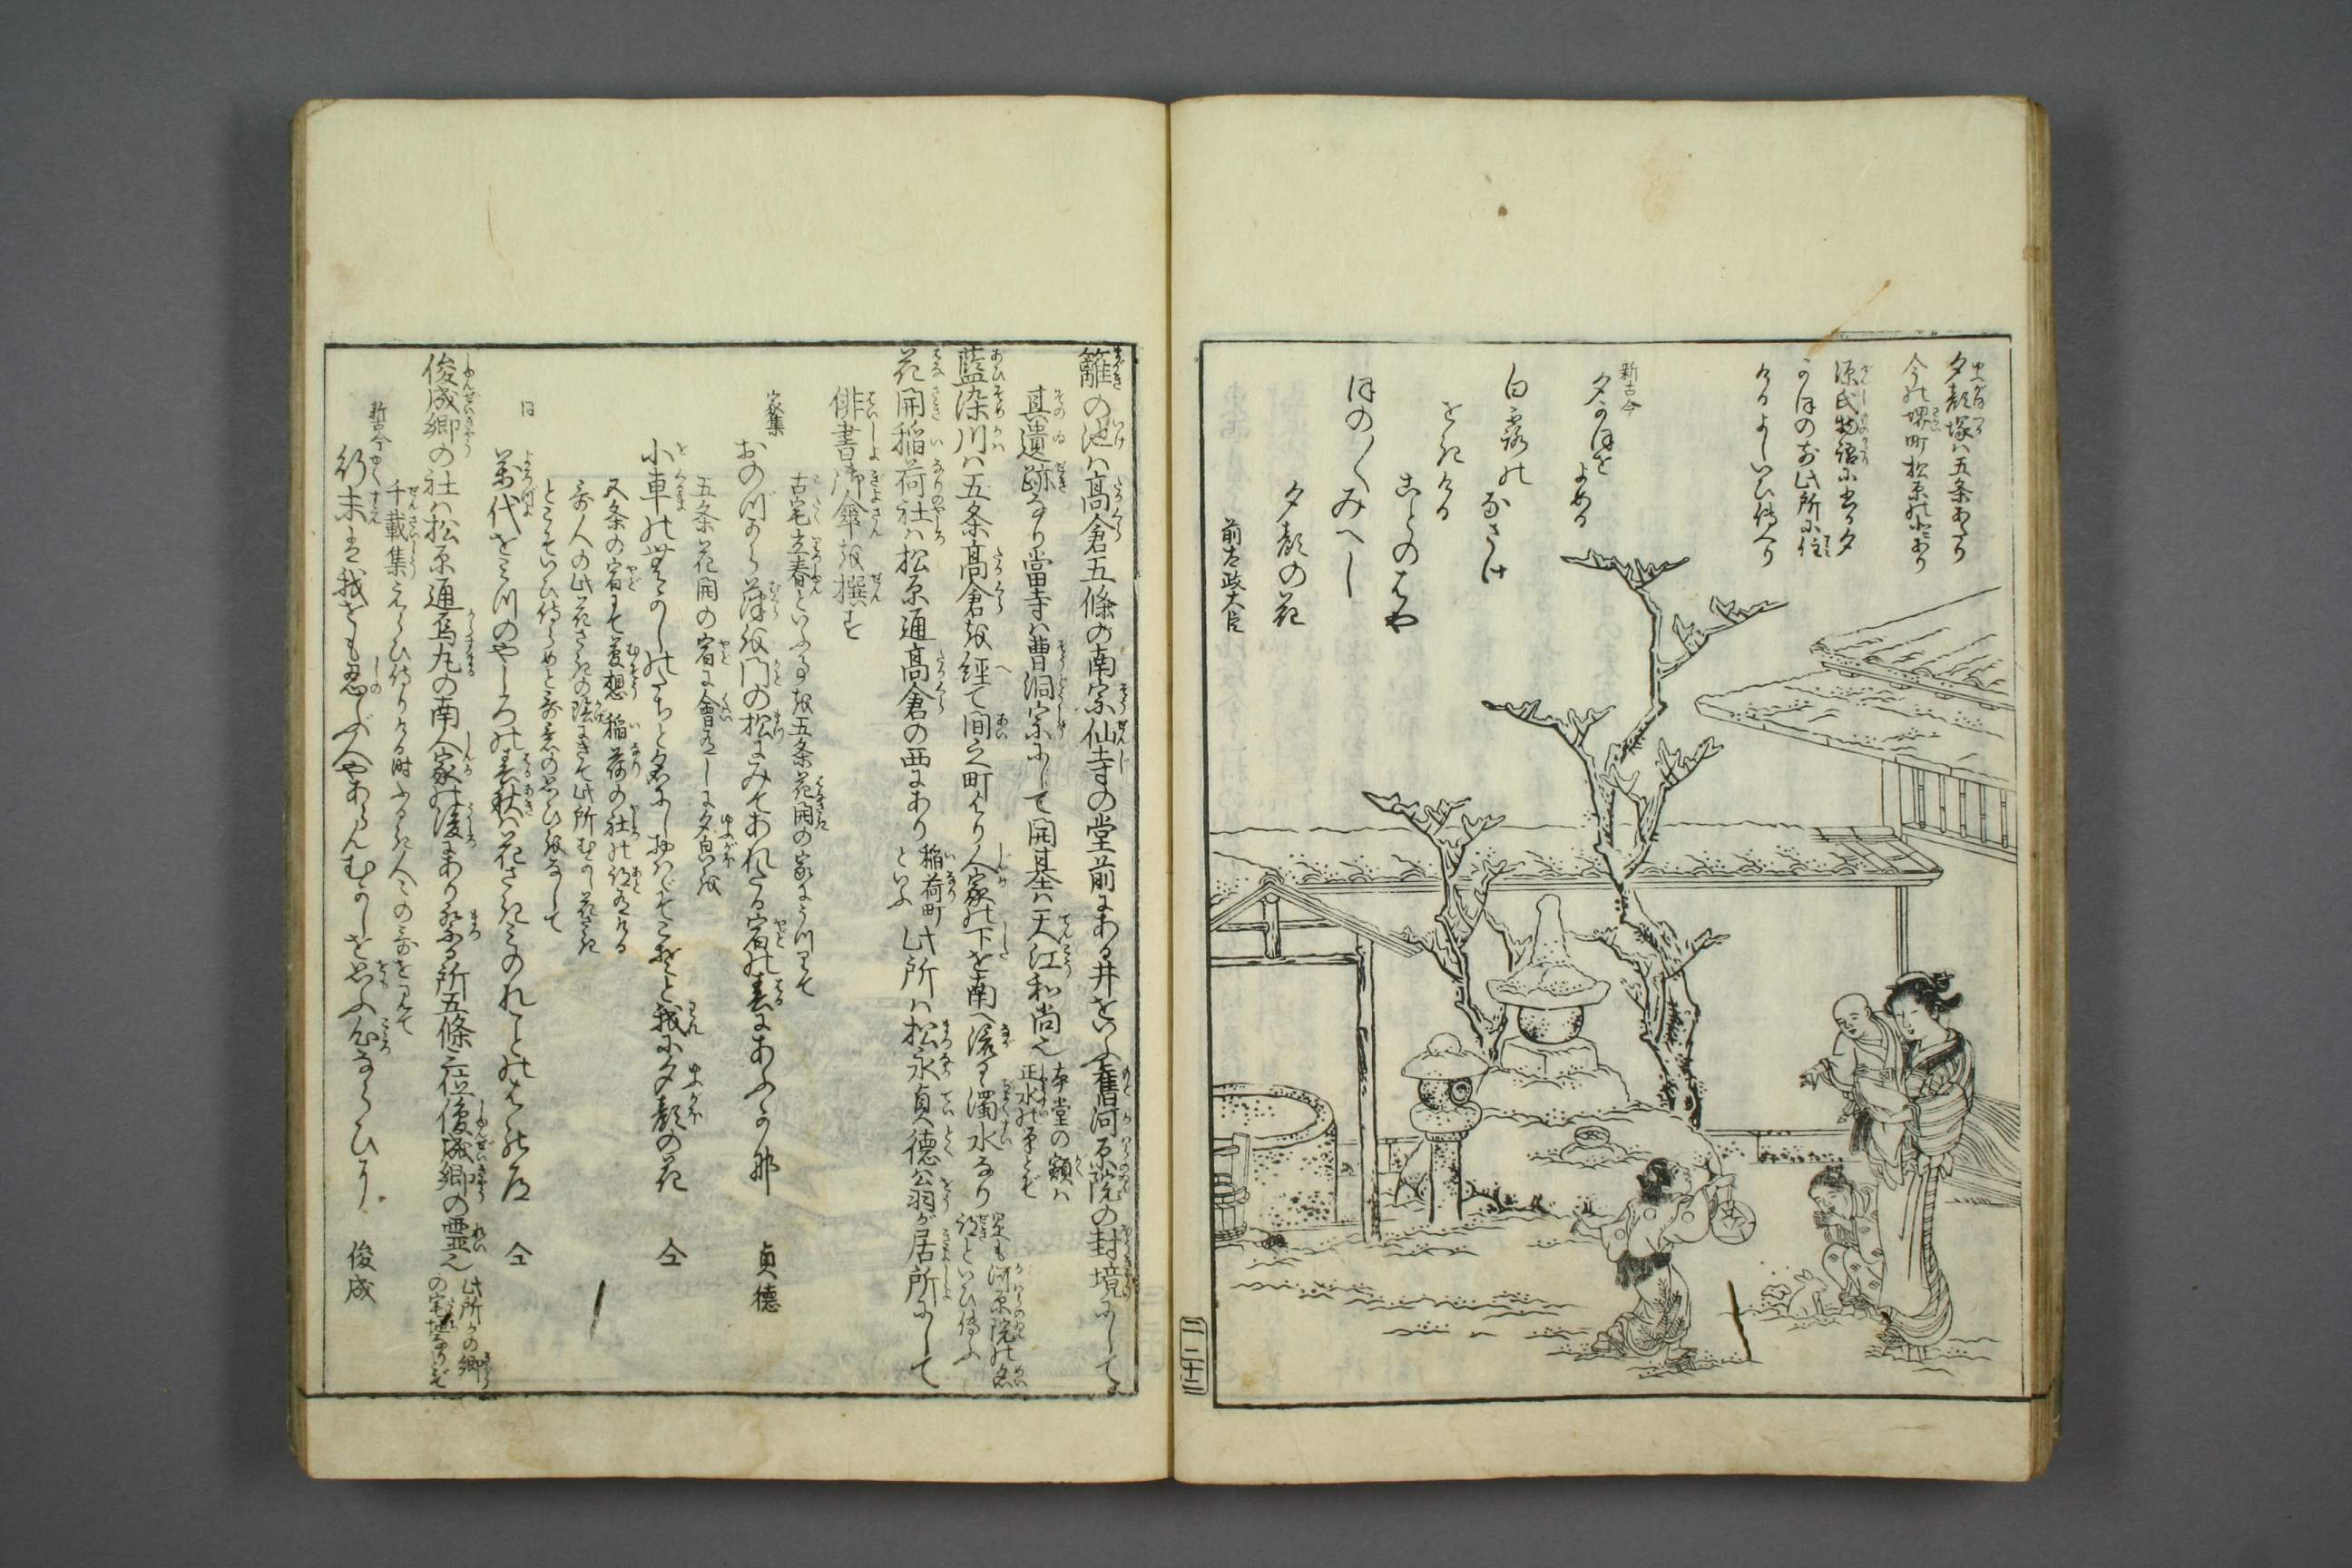 夕顔塚ハ五条あたり
今の堺町松原の北にあり
源氏物語に出る夕
かほのまへ此所に住
けるよしいひ伝へり
新古今
夕かほを
よめる
白露の
なさけ
をきける
ことのはや
ほの〱みへし
夕顔の花
前太政大臣
二二十三
籬の池ハ高倉五條の南宗仙寺の堂前にある井をいふ舊河原院の封境にして
其遺跡なり當寺ハ曹洞宗にして開基ハ天江和尚也
本堂の額ハ
正水の筆とぞ
藍染川ハ五条高倉を経て間之町より人家の下を南へ流るゝ濁水なり
是も河原院の名
跡といひ伝ふ
花開稲荷社ハ松原通高倉の西にあり
稲荷町
といふ
此所ハ松永貞徳公羽が居所にして
俳書御傘を撰す
古宅立春といふ事を五条花開の家にうつりて
家集
おのづから葎を門の松にみてあれたる宿の春にあふかな
貞徳
五条花開の宿に會有しに夕皃を
小車のよそのたちと名にしおハゞそこぞと我に夕顔の花
仝
又条の宿にて夢想稲荷の社の跡有ける
哥人の此花さきの陰にきて此所むかし花さき
とこそいひ侍らめと哥の思ひをなして
同
万代をみつのやしろの春秋ハ花さきみのれことのはの道
仝
俊成卿の社ハ松原通烏丸の南人家の後にあり祭る所五條三位俊成卿の霊也
此所かの卿
の宅地なりとぞ
千載集えらひ侍りける時ふるき人々の哥をみて
新古今
行末ハ我をも忍ぶ人やあらんむかしを思ふ心ならひに
俊成